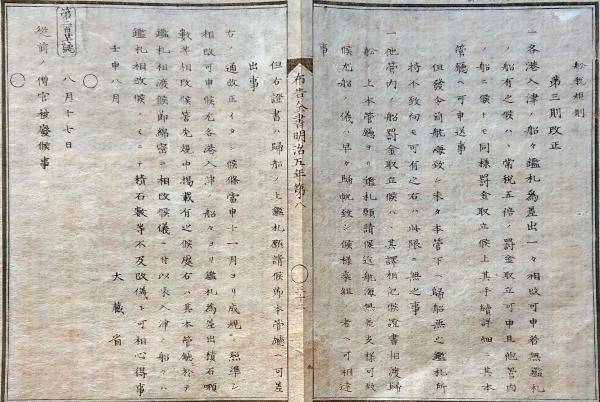 船税規則
第三則改正
一各港入津ノ船々鑑札為差出一々相改可申若無鑑札
ノ船有之候ハヽ常税五倍ノ罰金取立可申且他管内
ノ船ニ候トモ同様罰金取立候上其手續詳細ニ其本
管廳ヘ可申送事
但發令前航海致シ未タ本管下ヘ歸船無之鑑札所
持不致向モ可有之右ハ此限ニ無之事
一他管内ノ船罰金取立候ハヽ其譯相記候證書相渡歸
船ノ上本管廳ヨリ鑑札願請候迄航海無差支様可致
候尤船ノ儀ハ早々歸帆致シ候様乗組ノ者ヘ可相達
事
布告全書明治五年第八
但右證書ハ歸船ノ上鑑札願請候節本管廳ヘ可差
出事
右ノ通改正イタシ候條當申十一月ヨリ成規ニ照準シ
相改可申候尤各港入津ノ船々ヨリ鑑札為差出積石噸
數等相改候儀先規中掲載有之候處右ハ其本管廳於テ
鑑札相渡候節綿密ニ相改候儀ニ付以來入津ノ船々ハ
鑑札相改候ノミニテ積石數等不及改儀ト可相心得事
壬申八月
大藏省
八月十七日
從前ノ僧官被廢候事